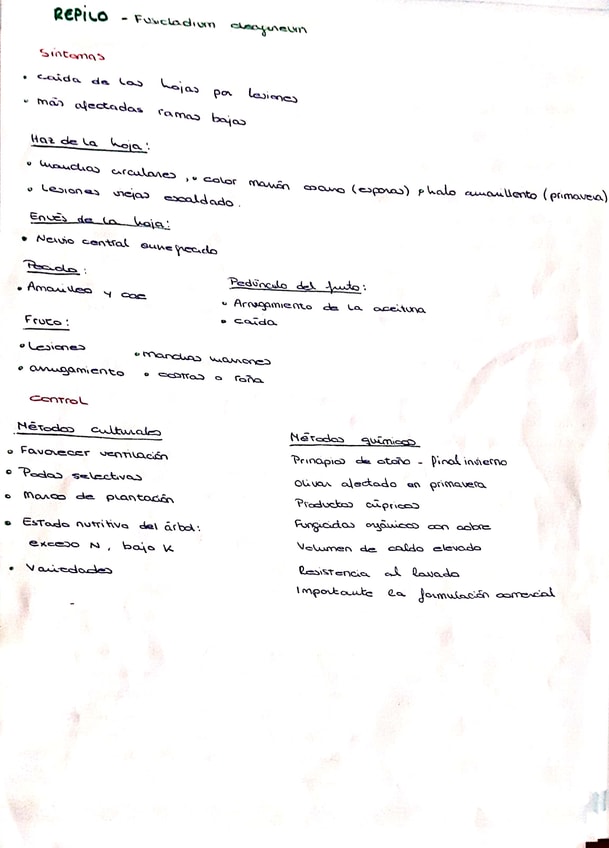 REPILO - Fusicladium oleagineum
Síntomas
• caída de las hojas por lesiones
• más afectadas ramas bajas
Haz de la hoja:
• manchas circulares, • color marrón oscuro (esporas) y halo amarillento (primavera)
• Lesiones viejas escaldado.
Envés de la hoja:
• Nervio central ennegrecido
Peciolo:
• Amarillea y cae
Pedúnculo del fruto:
• Arrugamiento de la aceituna
• caída
Fruto:
• Lesiones • manchas marrones
• arrugamiento • costras o roña
CONTROL
Métodos culturales
• Favorecer ventilación
• Podas selectivas
• Marco de plantación
• Estado nutritivo del árbol:
exceso N, bajo K
• Variedades
Métodos químicos
Principios de otoño - final invierno
Olivar afectado en primavera
Productos cúpricos
Fungicidas orgánicos con cobre
Volumen de caldo elevado
Resistencia al lavado
Importante la formulación comercial